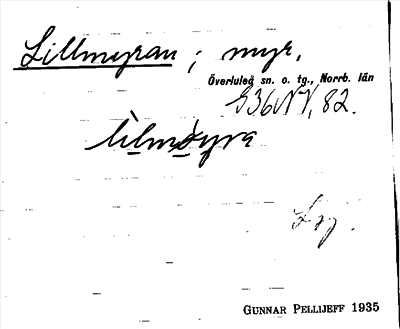 Lillmyran ; myr.
Överluleå sn. o. tg., Norrb. län
936NV, 82.
GUNNAR PELLIJEFF 1935